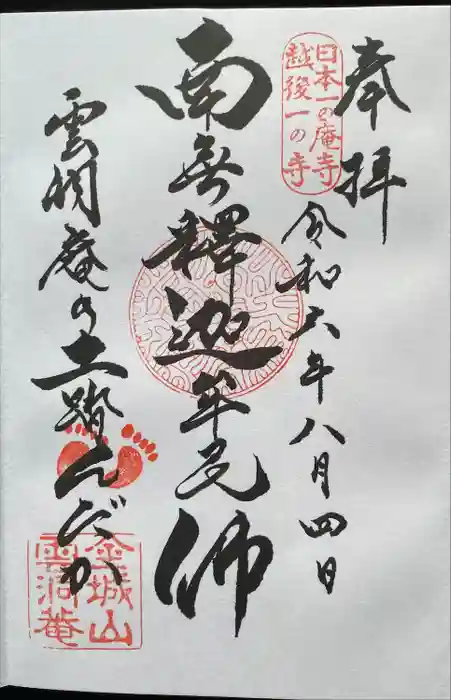 奉拝
日本一の庵寺
越後一の寺
令和六年八月四日
南無釋迦牟尼佛
雲洞庵の土踏んだか
金城山
雲洞菴